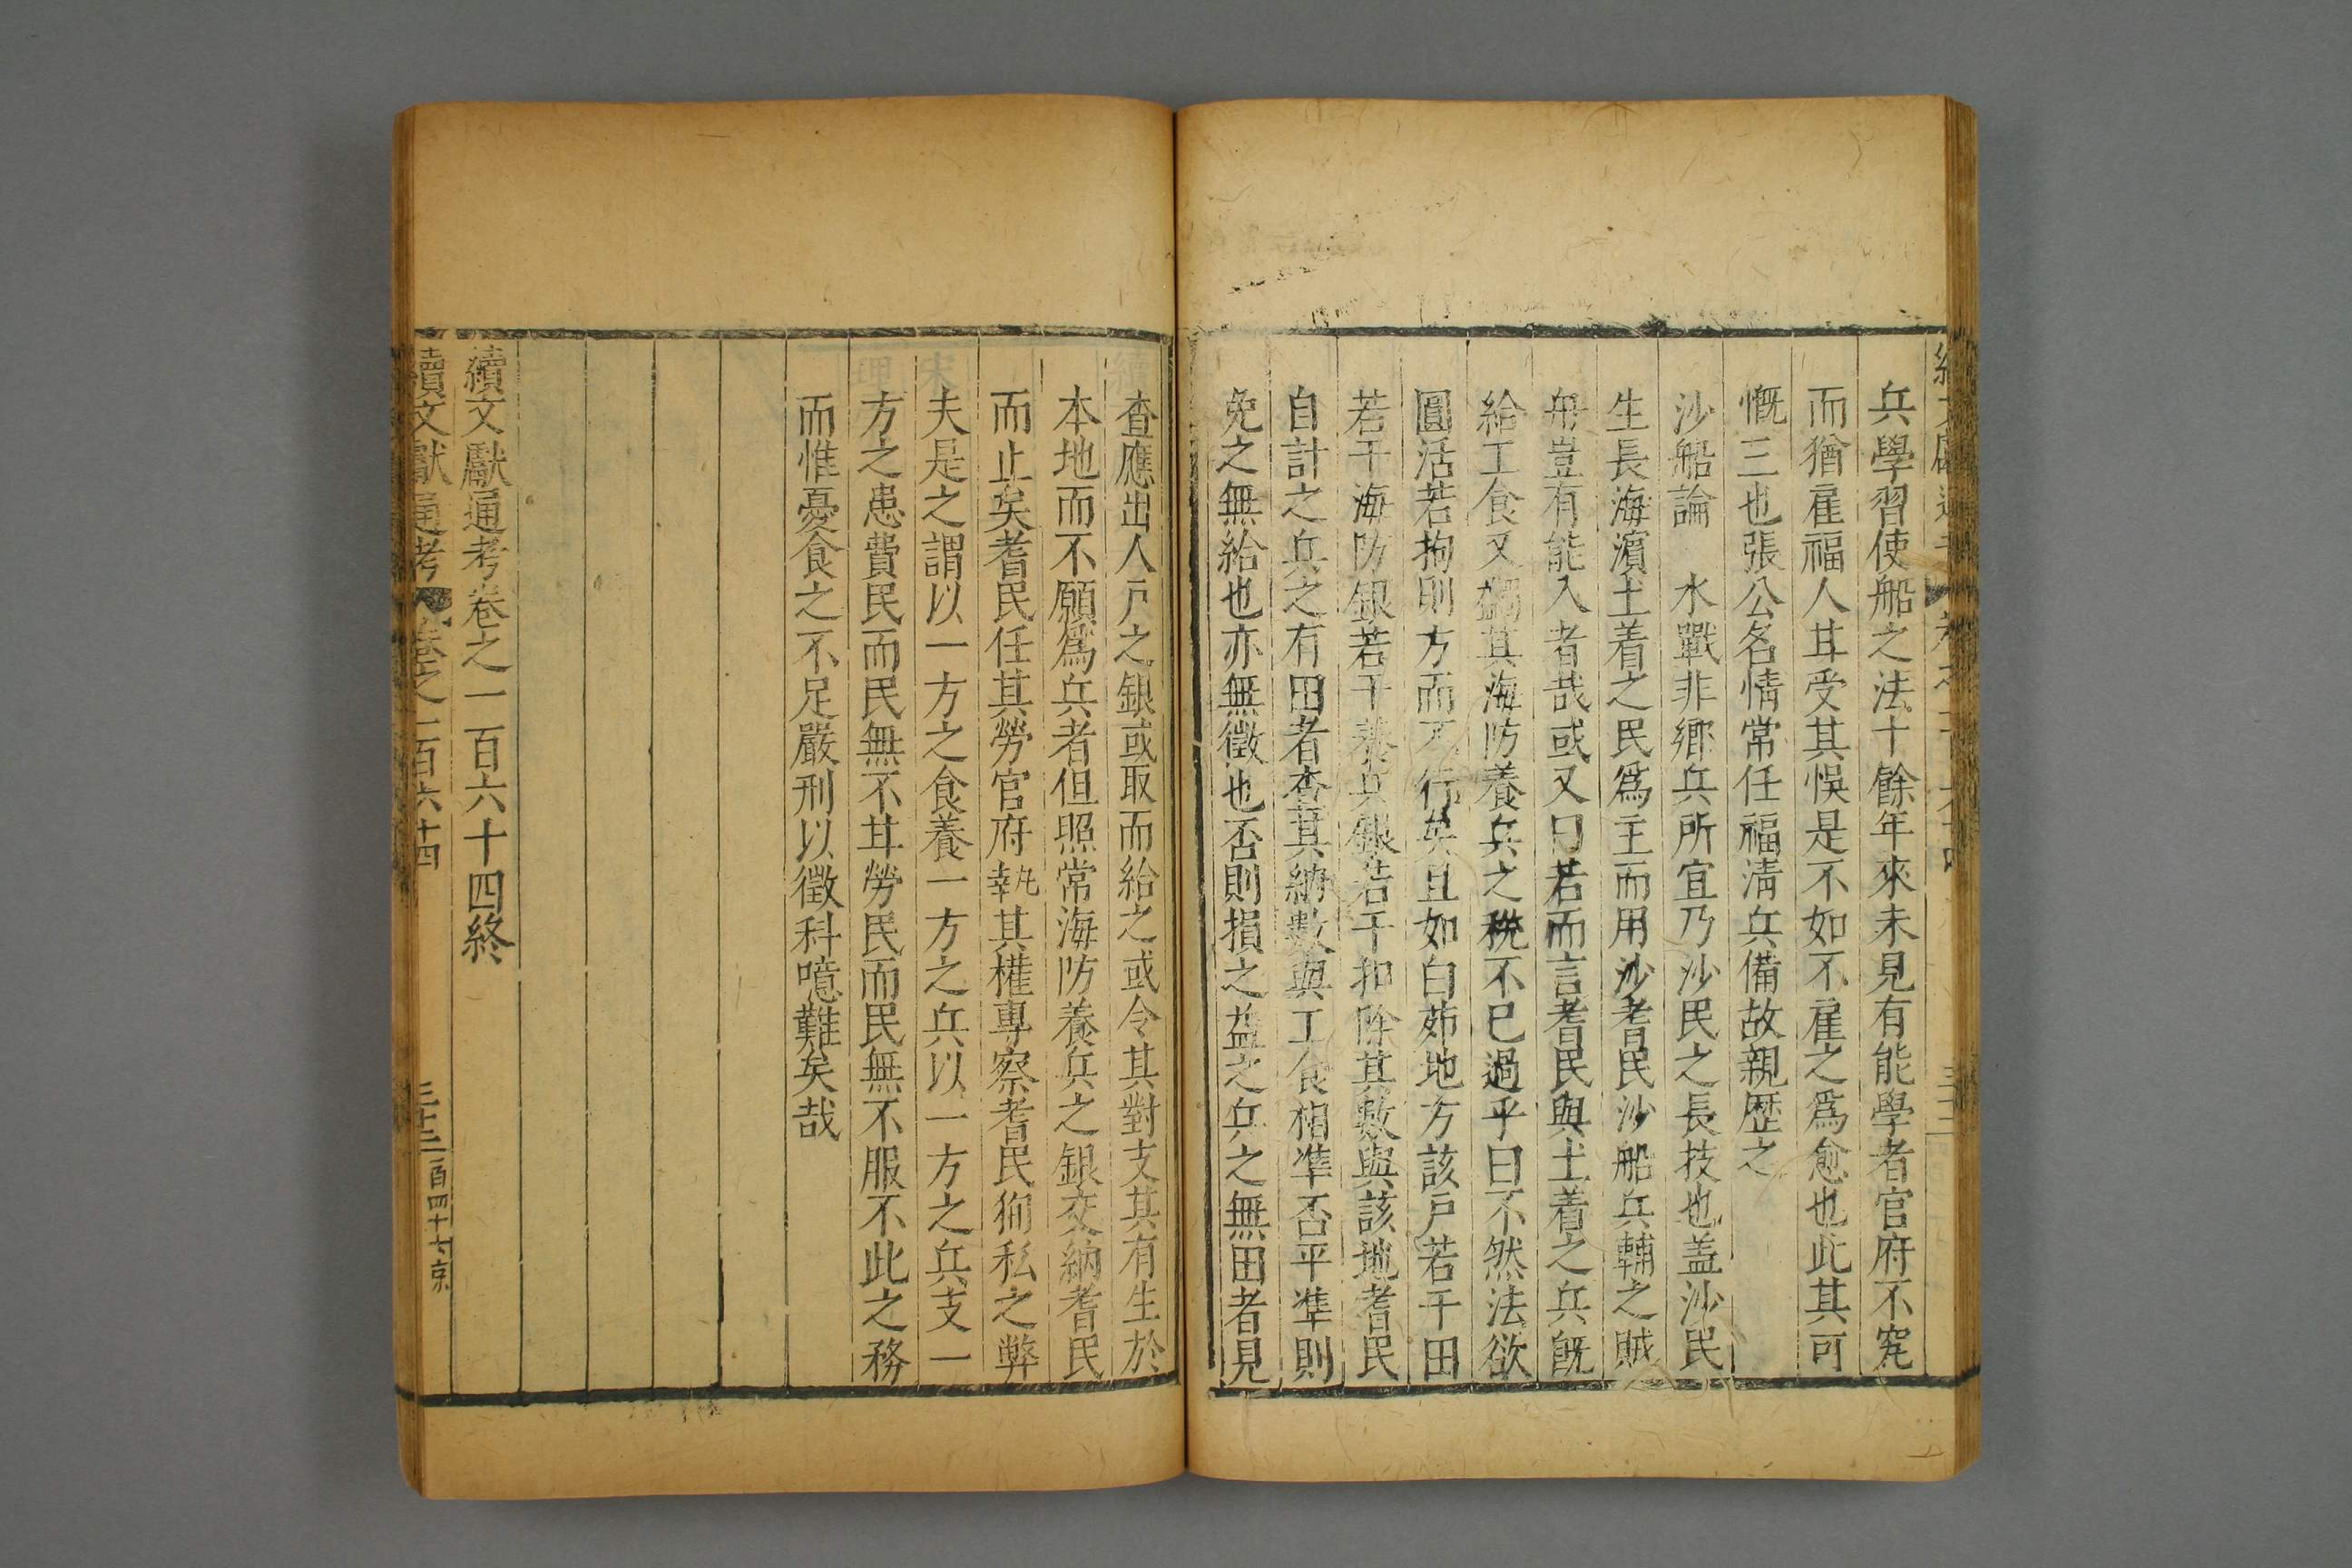 兵學習使船之法十餘年來未見有能學者官府不究
而猶雇福人甘受其悞是不如不雇之爲愈也此其可
慨三也張公名情常任福淸兵備故親歷之
沙船論　水戰非鄉兵所宜乃沙民之長技也盖沙民
生長海濱土着之民爲主而用沙耆民沙船兵輔之賊
船豈有能入者哉或又曰若而言耆民與土着之兵旣
給工食又蠲其海防養兵之稅不已過乎曰不然法欲
圓活若拘則方而不行矣且如白茆地方該戶若干田
若干海防銀若干養兵銀若干扣除其數與該地耆民
自計之兵之有田者查其納數與工食相準否平準則
免之無給也亦無徵也否則損之益之兵之無田者見
查應出人戶之銀或取而給之或令其對支其有生於
本地而不願爲兵者但照常海防養兵之銀交納耆民
而止矣耆民任其勞官府執其權專察耆民狥私之弊
夫是之謂以一方之食養一方之兵以一方之兵支一
方之患費民而民無不甘勞民而民無不服不此之務
而惟憂食之不足嚴刑以徵科噫難矣哉
續文獻通考卷之一百六十四終
續文獻通考　卷之一百六十四　三十三　百四十七　京